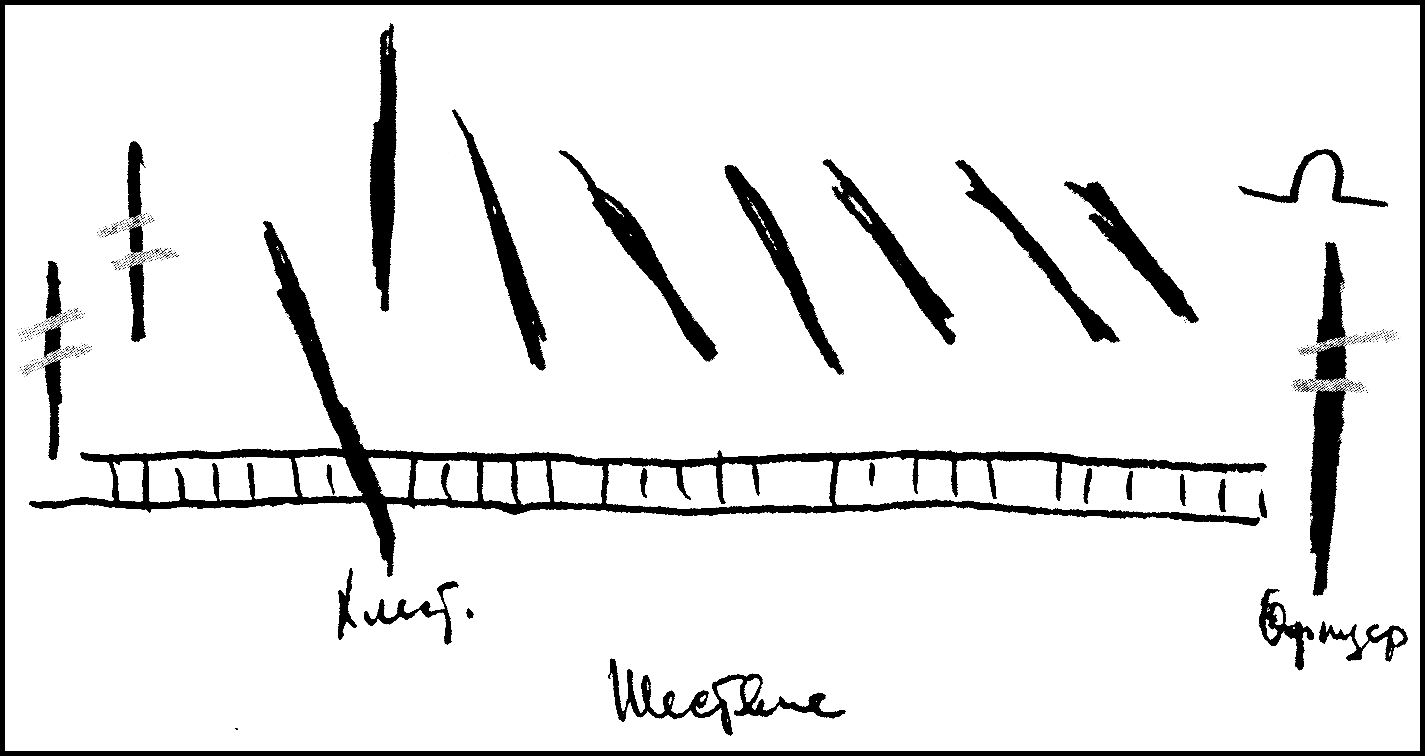 Хлест.
Офицер
Шествие